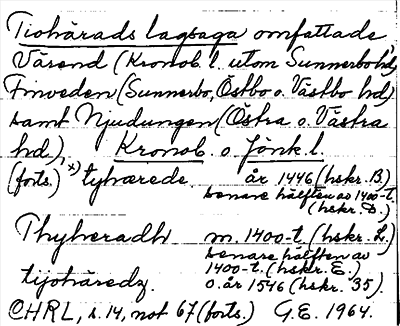 Tiohärads lagsaga omfattade,
Värend (Kronob. l. utom Sunnerbohd),
Finveden (Sunnerbo, Östbo o. Västbo hd)
samt Njudungen (Östra o. Västra
hd), Kronob. o. Jönk. l.
(forts.) x) tyhærede år 1446 (hskr. B)
senare hälften av 1400-t.
(hskr. D.)
Thyheradh m. 1400-t. (hskr. L.)
senare hälften av
1400-t. (hskr. E.)
tijohäredz o. år 1546 (hskr. 35).
CHRL, s. 14, not 67 (forts.) G.E. 1964.